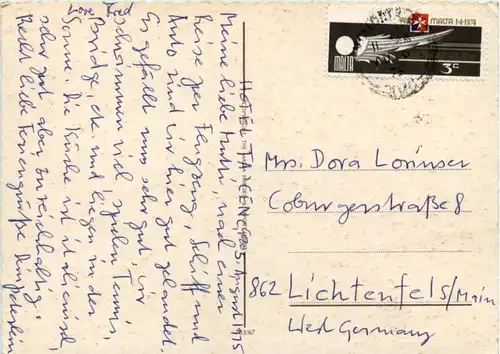 Love Fred
HOTEL TA' CENC, 25. August 1975
Meine liebe Mutti, nach einer
Reise per Flugzeug, Schiff und
Auto sind wir hier gut gelandet.
Es gefällt uns sehr gut, wir
schwimmen viel, spielen Tennis,
Bridge etc und liegen in der
Sonne. Die Küche ist italienisch,
sehr gut aber zu reichhaltig.
Recht liebe Feriengrüße
MALTA 1·4·1974
MALTA
3c
Mrs. Dora Lorinser
Coburgerstraße 8
862 Lichtenfels/Main
West Germany